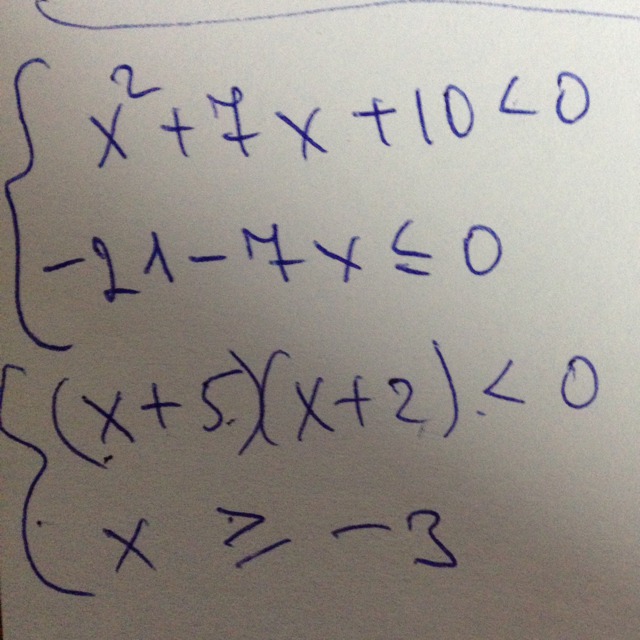 x² + 7x + 10 < 0
-21 - 7x ≤ 0
(x + 5)(x + 2) < 0
x ≥ -3